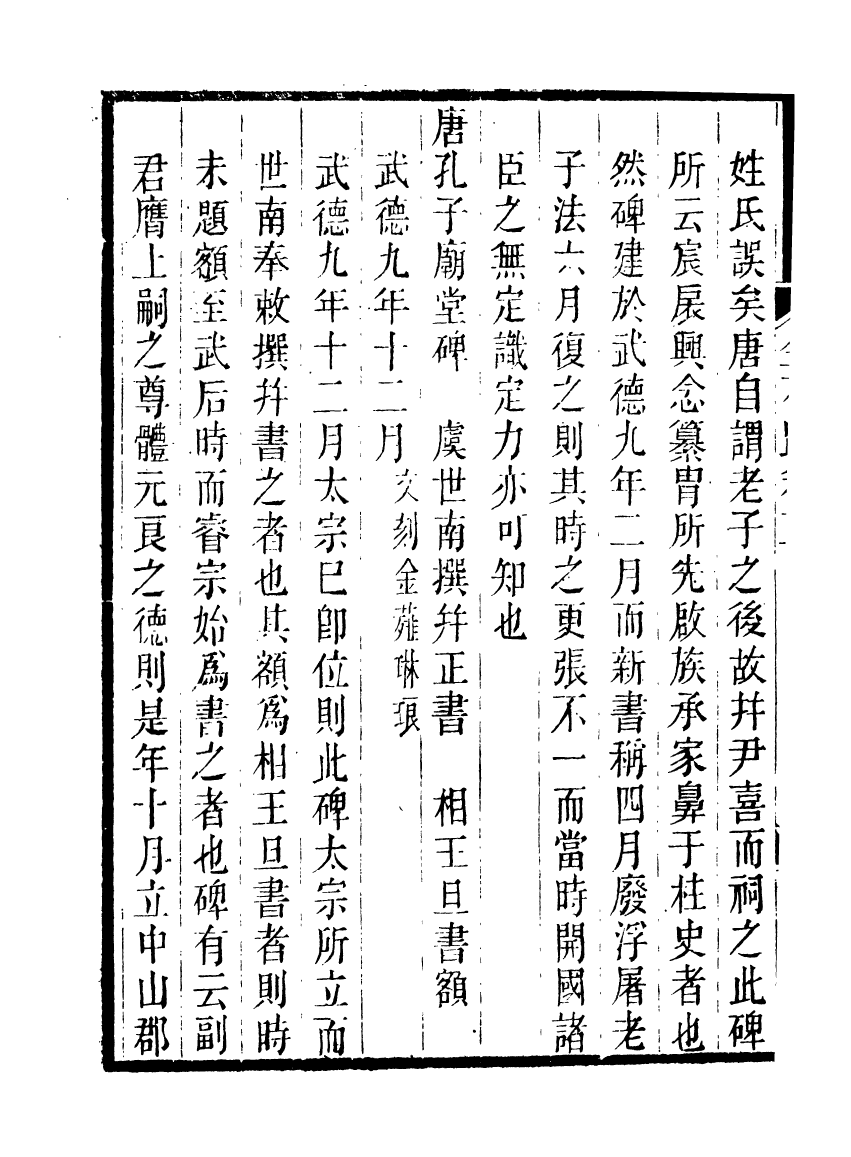 姓氏誤矣唐自謂老子之後故幷尹喜而祠之此碑
所云宸扆興念纂胄所先啟族承家鼻于柱史者也
然碑建於武德九年二月而新書稱四月廢浮屠老
子法六月復之則其時之更張不一而當時開國諸
臣之無定識定力亦可知也
唐孔子廟堂碑　虞世南撰幷正書　相王旦書額
武德九年十二月文刻金薤琳琅
武德九年十二月太宗已卽位則此碑太宗所立而
世南奉敕撰幷書之者也其額爲相王旦書者則時
未題額至武后時而睿宗始爲書之者也碑有云副
君膺上嗣之尊體元良之德則是年十月立中山郡